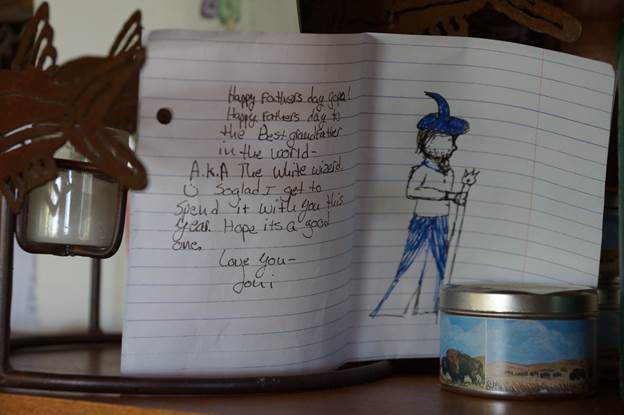 Happy Fathers day gpa!
Happy Fathers day to
the Best grandfather
in the world-
A.K.A The White wizerd
☺ So glad I get to
spend it with you this
year. Hope its a good
one.
Love you-
Joni